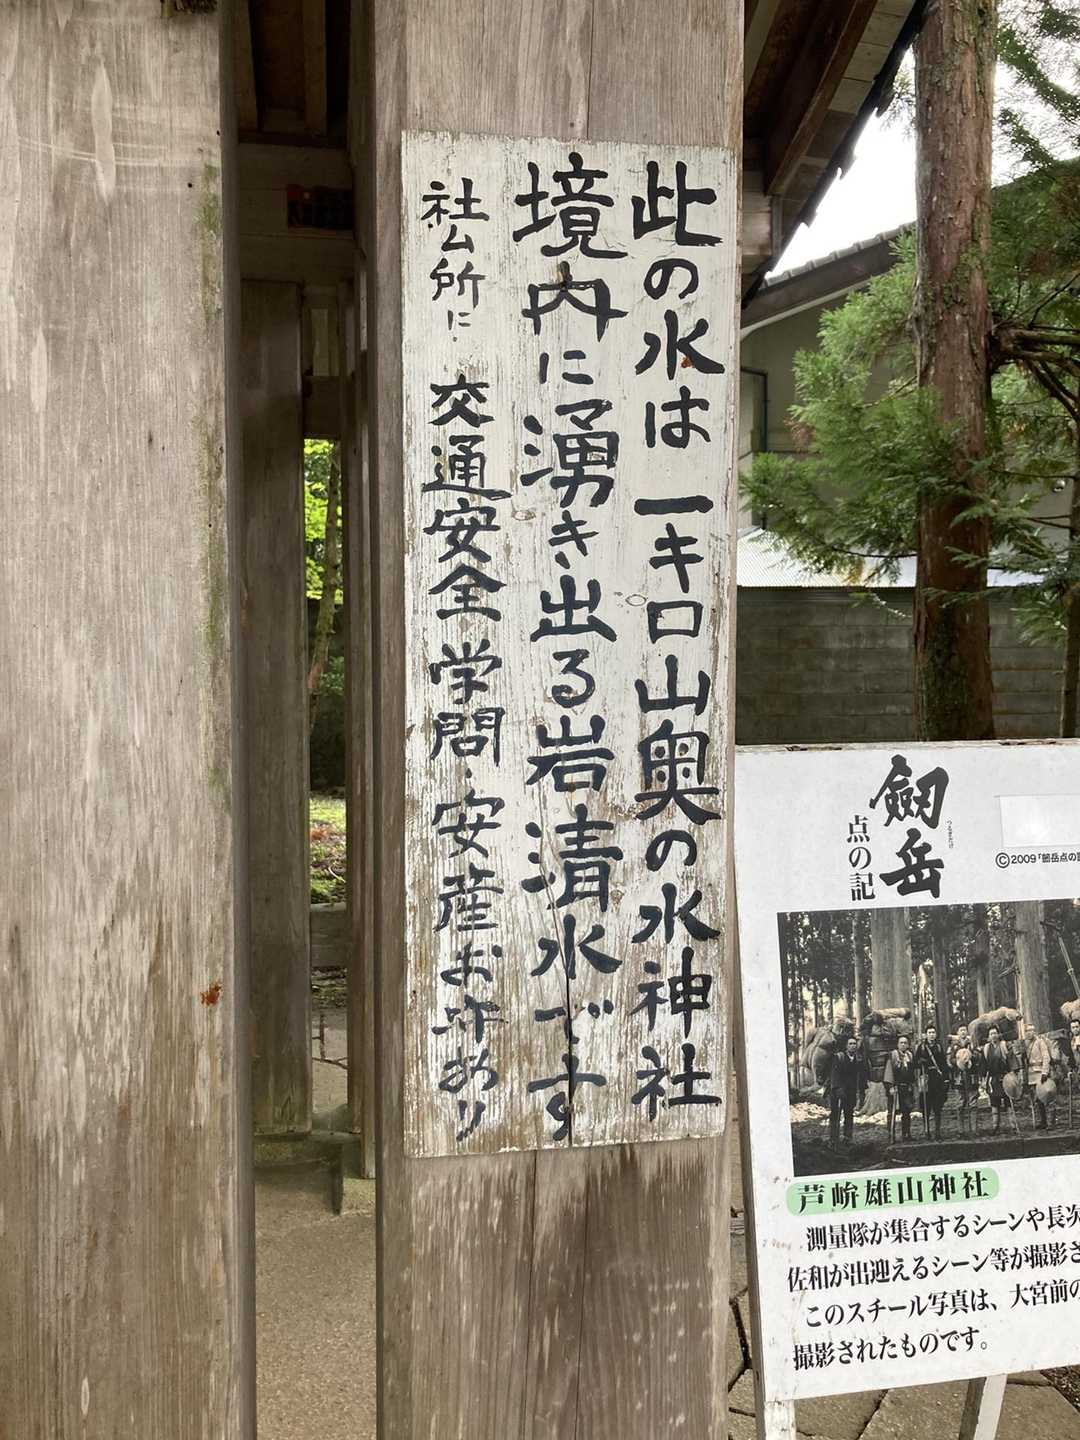 此の水は一キロ山奥の水神社
境内に湧き出る岩清水です
社ム所に 交通安全 学問・安産お守あり
劔岳
つるぎたけ
点の記
©2009「劔岳点の記
芦峅雄山神社
測量隊が集合するシーンや長次
佐和が出迎えるシーン等が撮影さ
このスチール写真は、大宮前の
撮影されたものです。